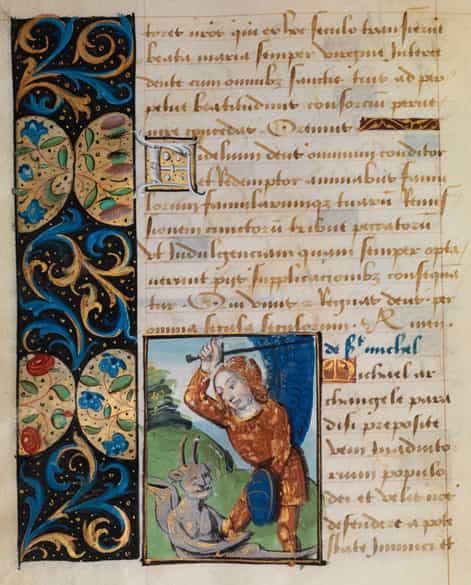 qui ex hoc seculo transieru̅t
beata maria semper virgine interce
dente cum omnibz sanctis tuis ad per
petue beatitudinis consorciu̅ perue
nire concedas. Oremus
Fidelium deus omnium conditor
et Redemptor animabus famu
lorum famularumqz tuaru̅ Remis
sionem cunctoru̅ tribue peccatoru̅
Vt Indulgenciam quam semper opta
uerunt piis supplicacionibz consequa
tur. Qui viuis Regnas deus. per
omnia secula seculorum. R. Amen.
de st michel
Michael ar
changele para
disi preposite
veni In adiuto
rium populo
dei et velis nos
defendere a pote
state Inimici et